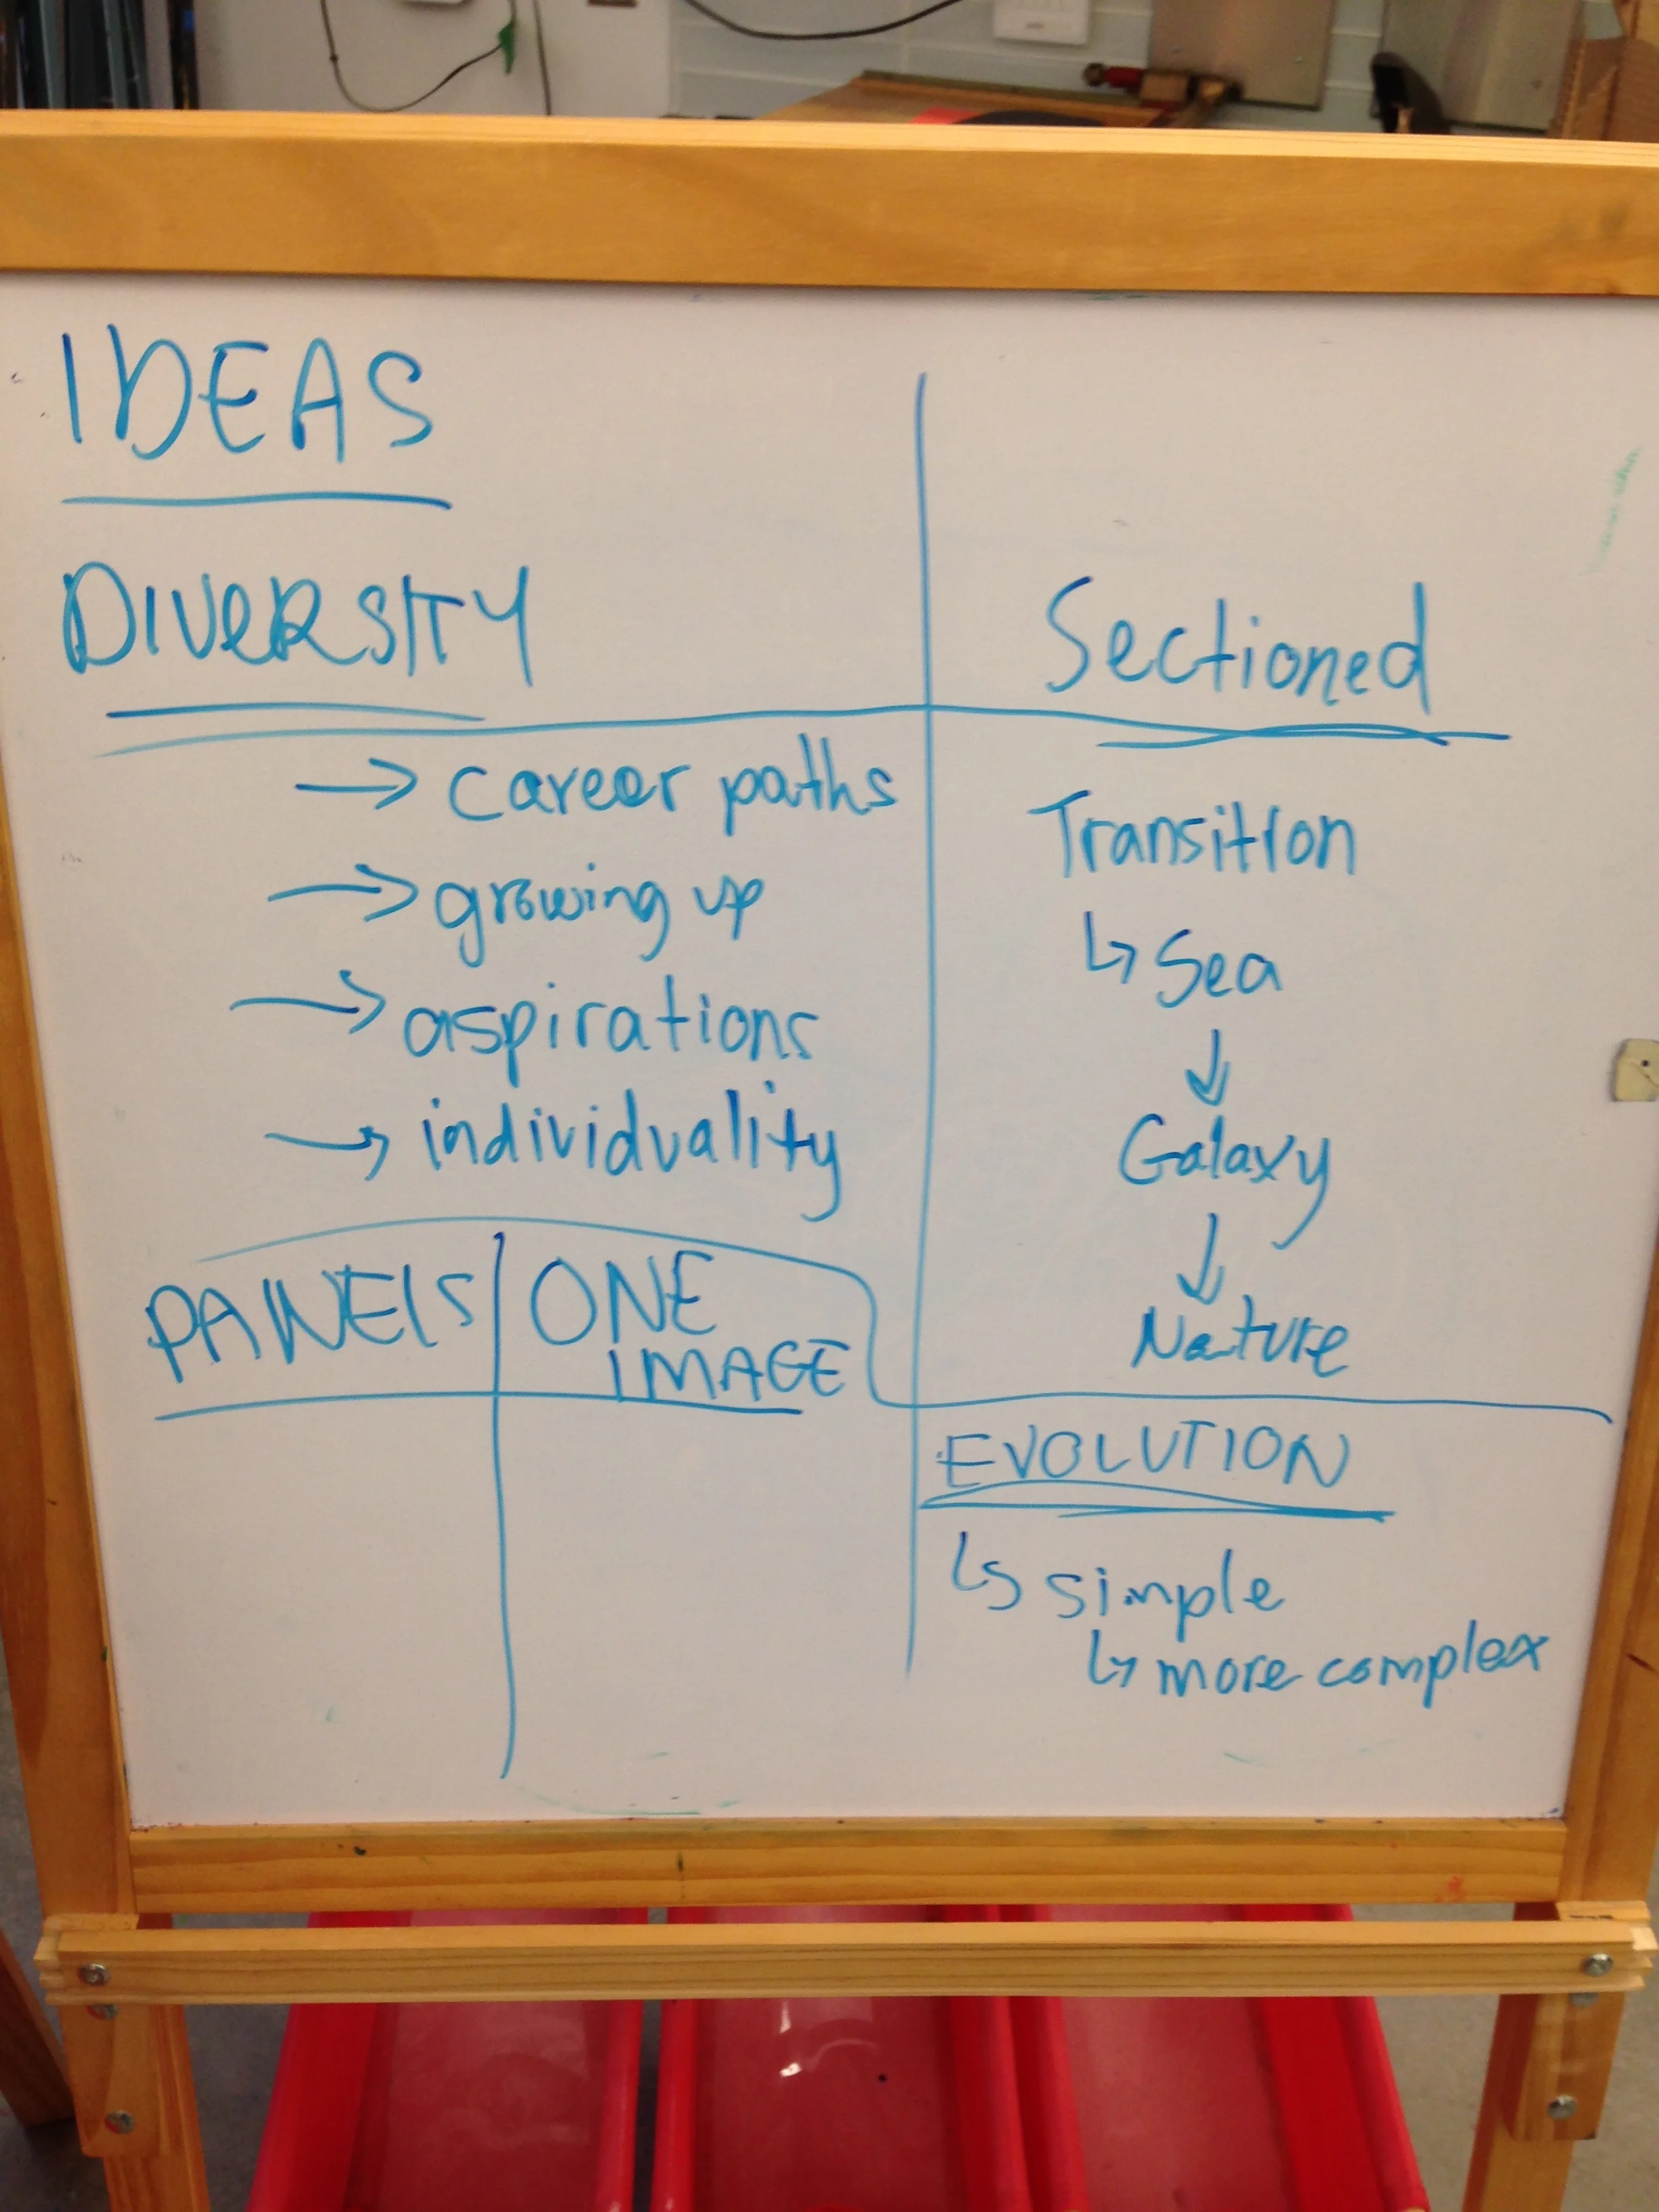 IDEAS
DIVERSITY
→ career paths
→ growing up
→ aspirations
→ individuality
Sectioned
Transition
↳ Sea
↓
Galaxy
↓
Nature
PANELS
ONE
IMAGE
EVOLUTION
↳ simple
↳ more complex